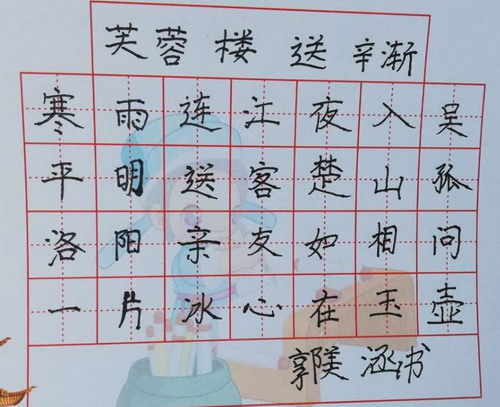 芙蓉楼送辛渐
寒雨连江夜入吴
平明送客楚山孤
洛阳亲友如相问
一片冰心在玉壶
郭美涵书